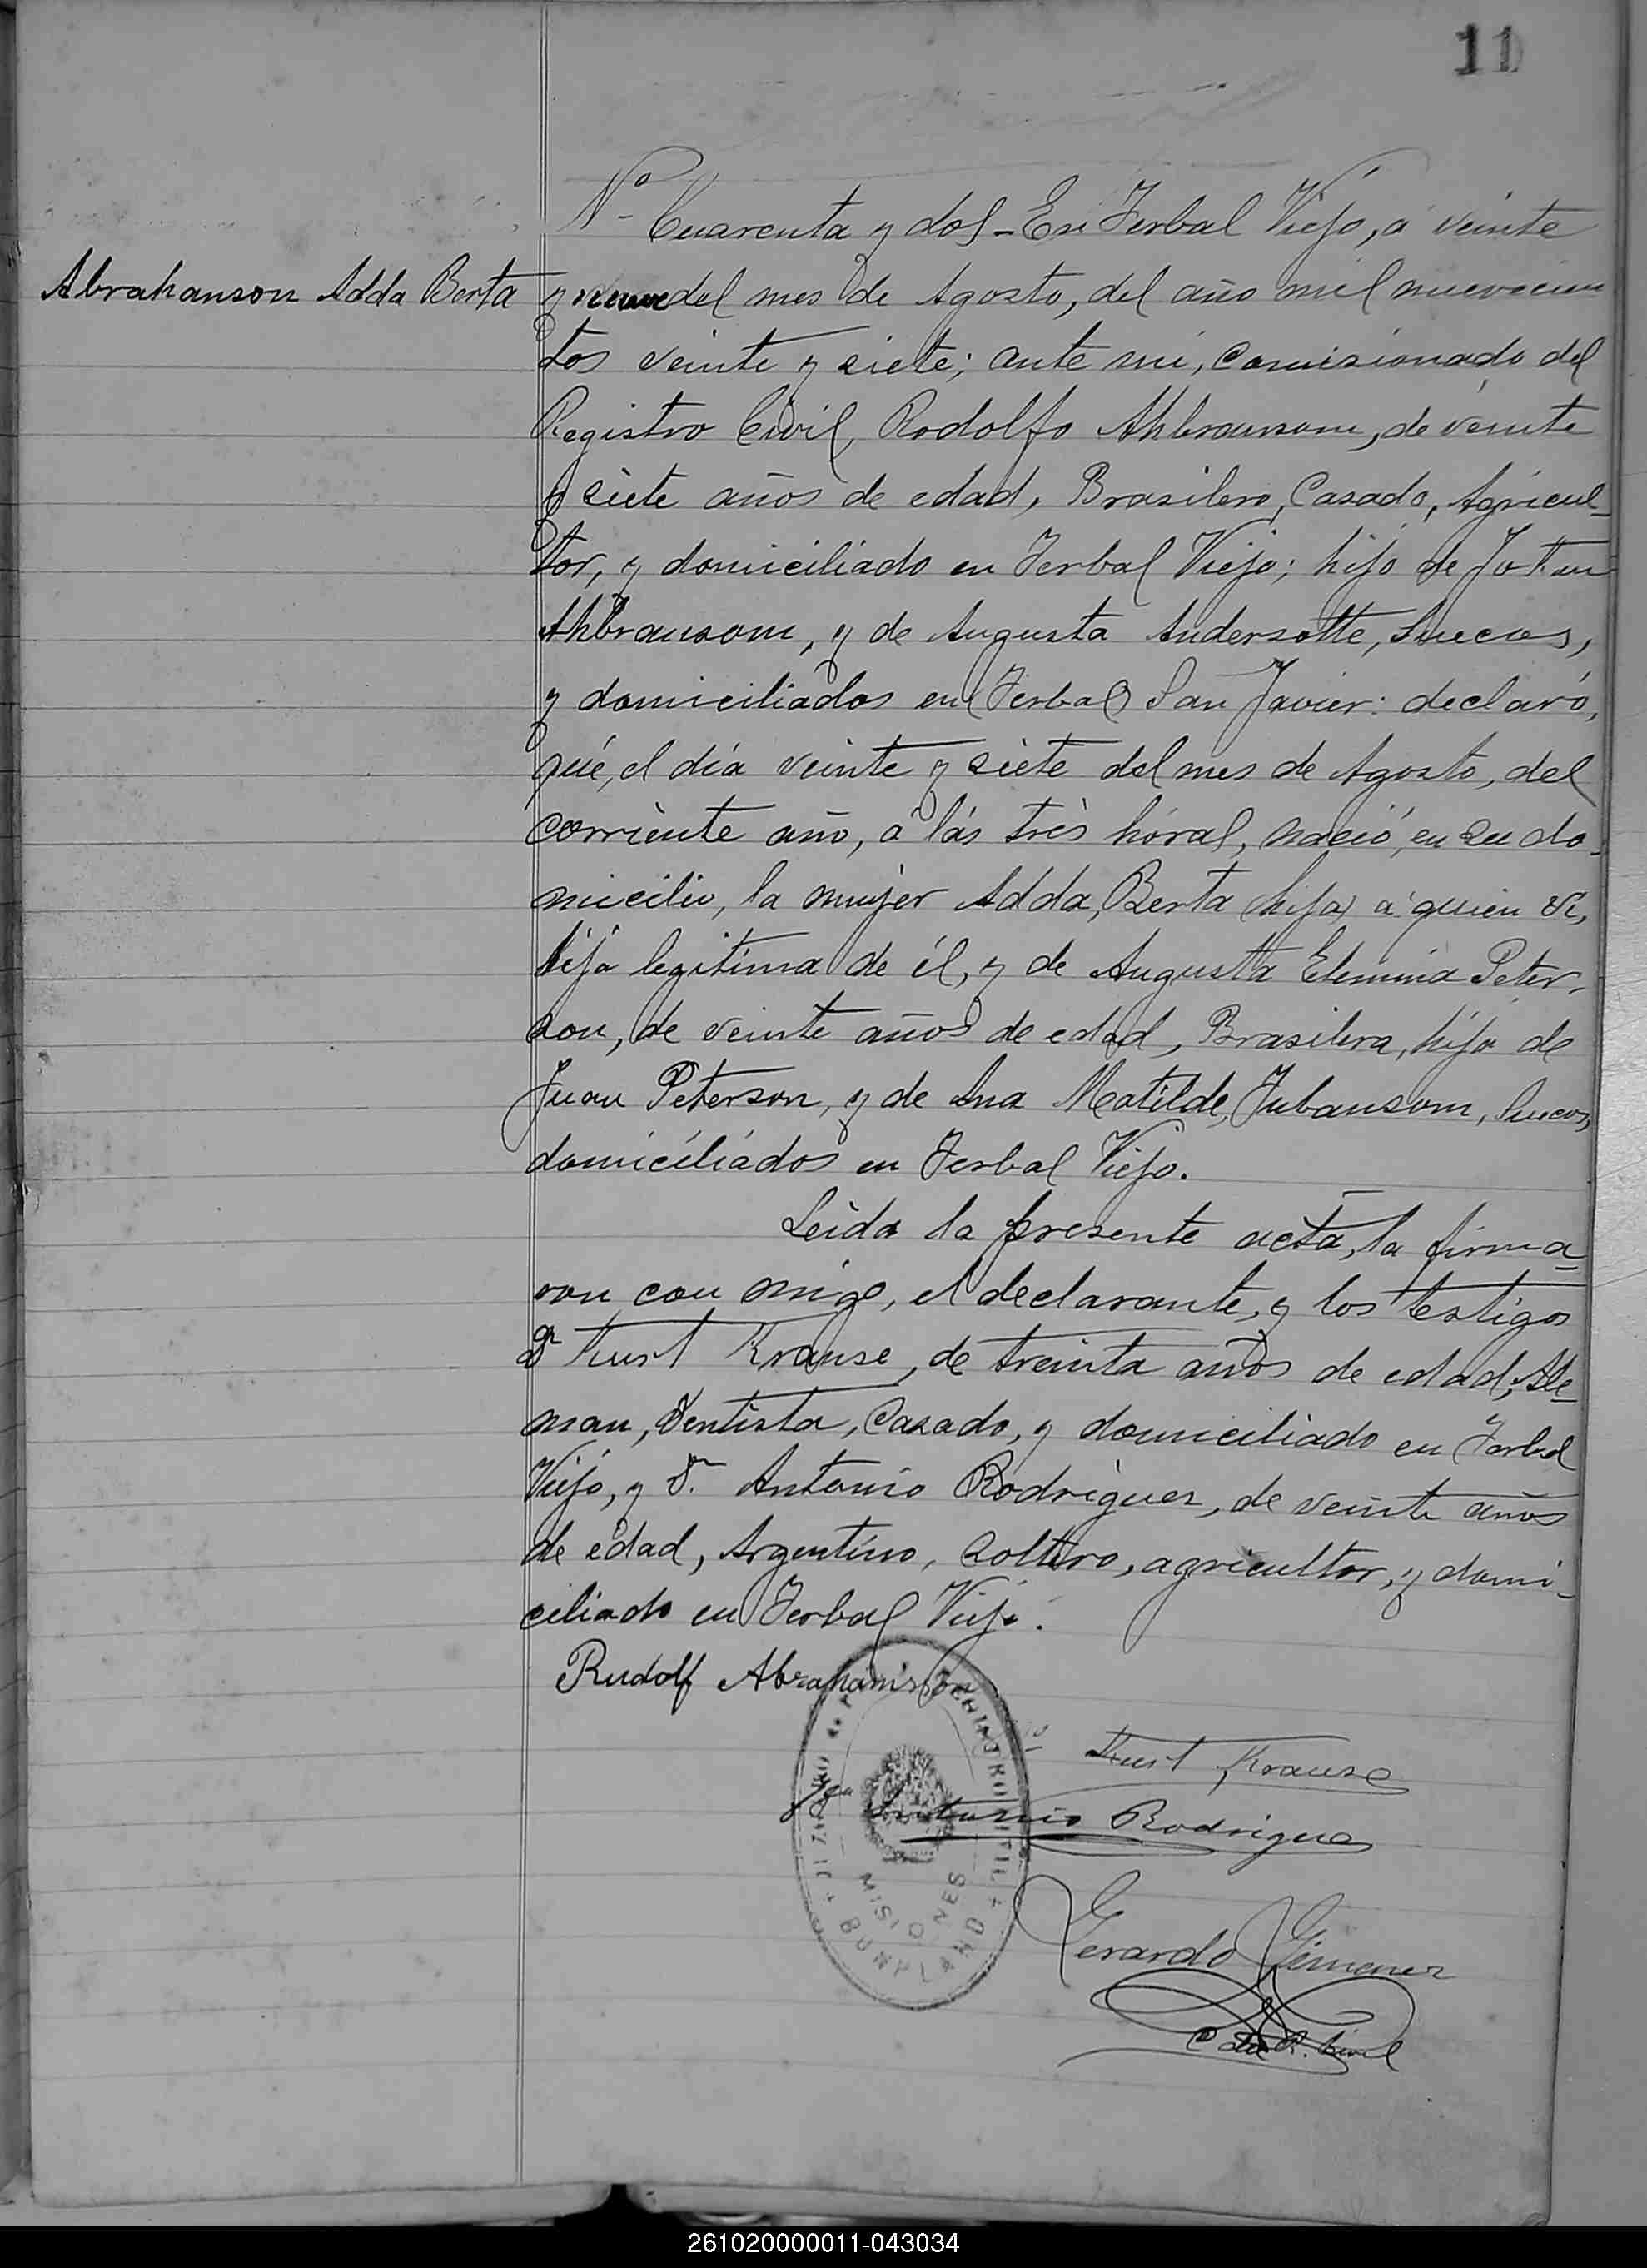 11
Nº Cuarenta y dos - En Yerbal Viejo, á veinte
Abrahanson Adda Berta
y nueve del mes de Agosto, del año mil nuevecien
tos veinte y siete; ante mi, Comisionado del
Registro Civil, Rodolfo Ahbransom, de veinte
y siete años de edad, Brasilero, Casado, Agricul-
tor, y domiciliado en Yerbal Viejo; hijo de
Ahbransom, y de Augusta Andersotte, Suecos,
y domiciliados en Yerbal San Javier: declaró,
qué, el día veinte y siete del mes de Agosto, del
corriente año, á lás três hóras, nació, en su do-
micilio, la mujer Adda, Berta (hija) á quien ví,
hija legitima de él, y de Augusta Elemina Peter-
son, de veinte años de edad, Brasilera, hija de
Juan Peterson, y de Ana Matilde, Jubansom, Suecos,
domiciliados en Yerbal Viejo.
Leida la presente acta, la firma
ron con migo, el declarante, y los testigos
Dn Kurt Krause, de treinta años de edad, Ale-
man, Dentista, Casado, y domiciliado en Yerbal
Viejo, y Dn. Antonio Rodriguez, de veinte años
de edad, Argentino, Soltero, agricultor, y domi-
ciliado en Yerbal Viejo.
Rudolf Abrahamson
Kurt Krause
Antonio Rodriguez
MISIONES
BONPLAND
Gerardo Gimenez
C del R. Civil
261020000011-043034